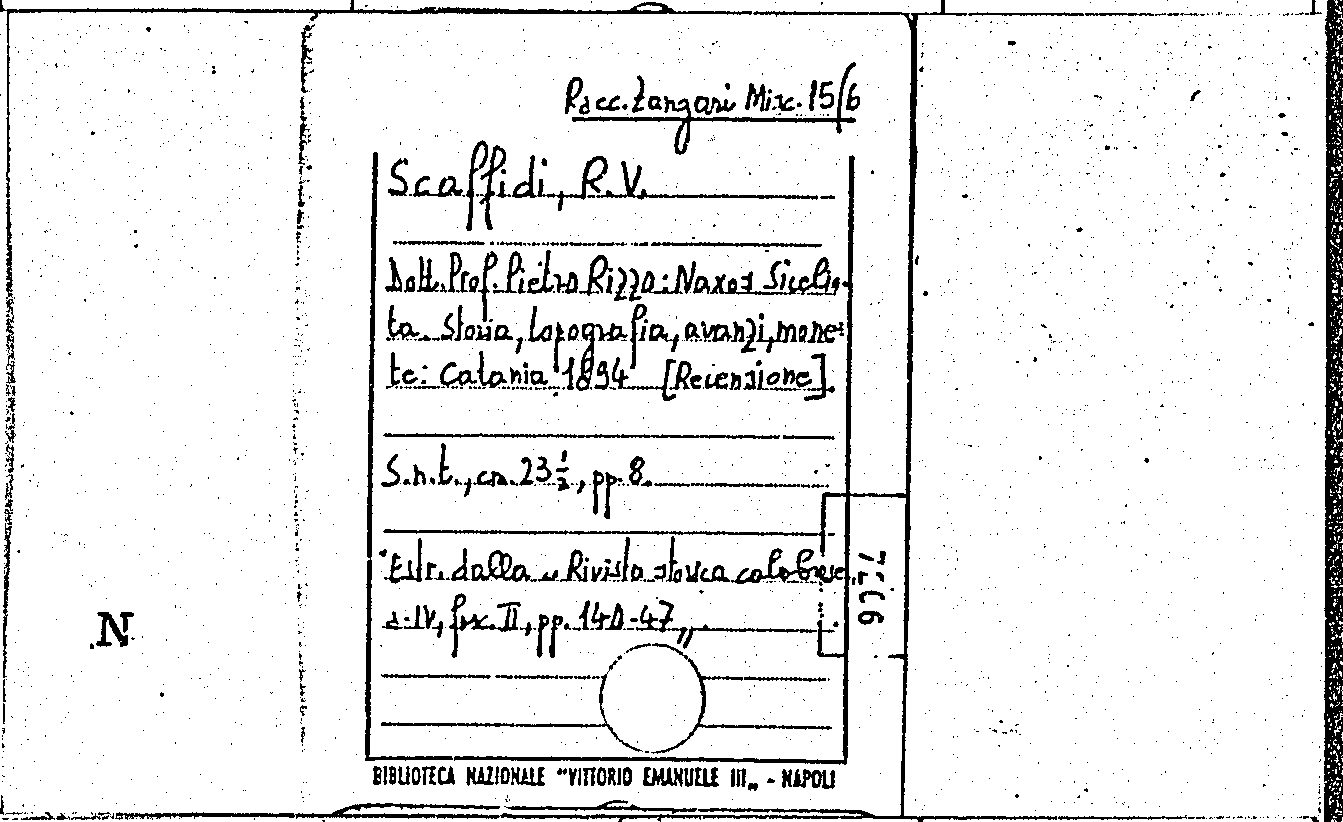 Racc. Zangari Misc. 15/6
Scaffidi, R.V.
Dott. Prof. Pietro Rizzo: Naxos Sicelio-
ta. Storia, topografia, avanzi, mone-
te: Catania 1894 [Recensione].
S.n.t., cm. 23 1/2, pp. 8.
Estr. dalla „ Rivista storica calabrese,
a. IV, fasc. II, pp. 140-47„.
N
BIBLIOTECA NAZIONALE "VITTORIO EMANUELE III„ - NAPOLI